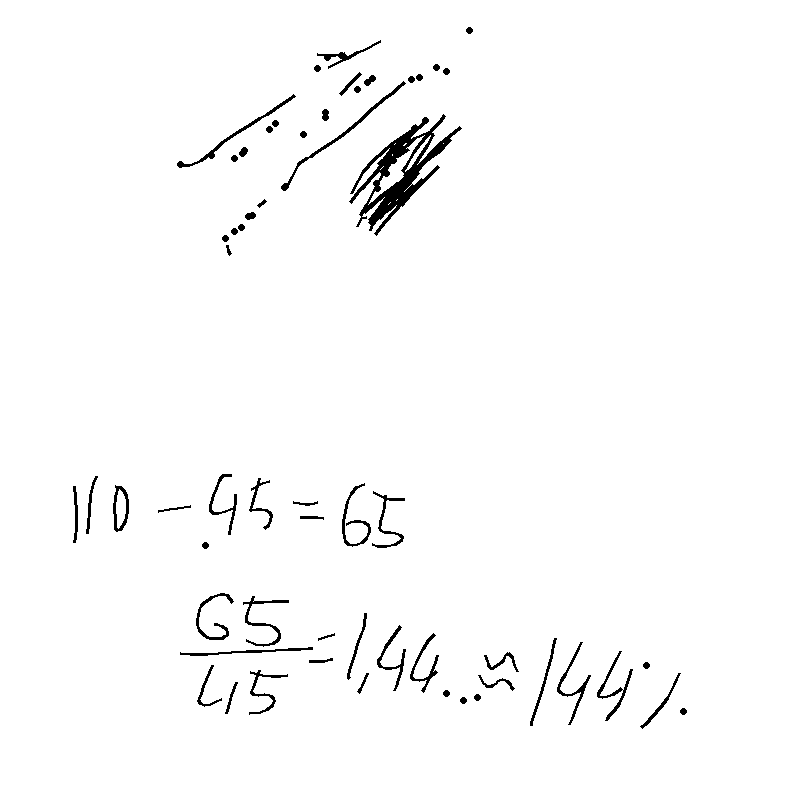 110 - 45 = 65
65/45 = 1,44... ≈ 144%